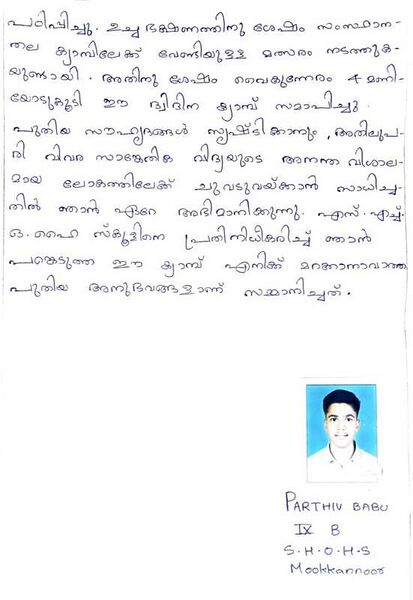 പഠിപ്പിച്ചു. ഉച്ച ഭക്ഷണത്തിനു ശേഷം സംസ്ഥാന-
തല ക്യാമ്പിലേക്ക് വേണ്ടിയുള്ള മത്സരം നടത്തുക-
യുണ്ടായി. അതിനു ശേഷം വൈകുന്നേരം 4 മണി-
യോടുകൂടി ഈ ദ്വിദിന ക്യാമ്പ് സമാപിച്ചു.
പുതിയ സൗഹൃദങ്ങൾ സൃഷ്ടിക്കാനും, അതിലുപ-
രി വിവര സാങ്കേതിക വിദ്യയുടെ അനന്ത വിശാല-
മായ ലോകത്തിലേക്ക് ചുവടുവയ്ക്കാൻ സാധിച്ച-
തിൽ ഞാൻ ഏറെ അഭിമാനിക്കുന്നു. എസ്.എച്ച്.
ഒ. ഹൈ സ്കൂളിനെ പ്രതിനിധീകരിച്ച് ഞാൻ
പങ്കെടുത്ത ഈ ക്യാമ്പ് എനിക്ക് മറക്കാനാവാത്ത
പുതിയ അനുഭവങ്ങളാണ് സമ്മാനിച്ചത്.
PARTHIV BABU
IX B
S.H.O.H.S
Mookkannoor